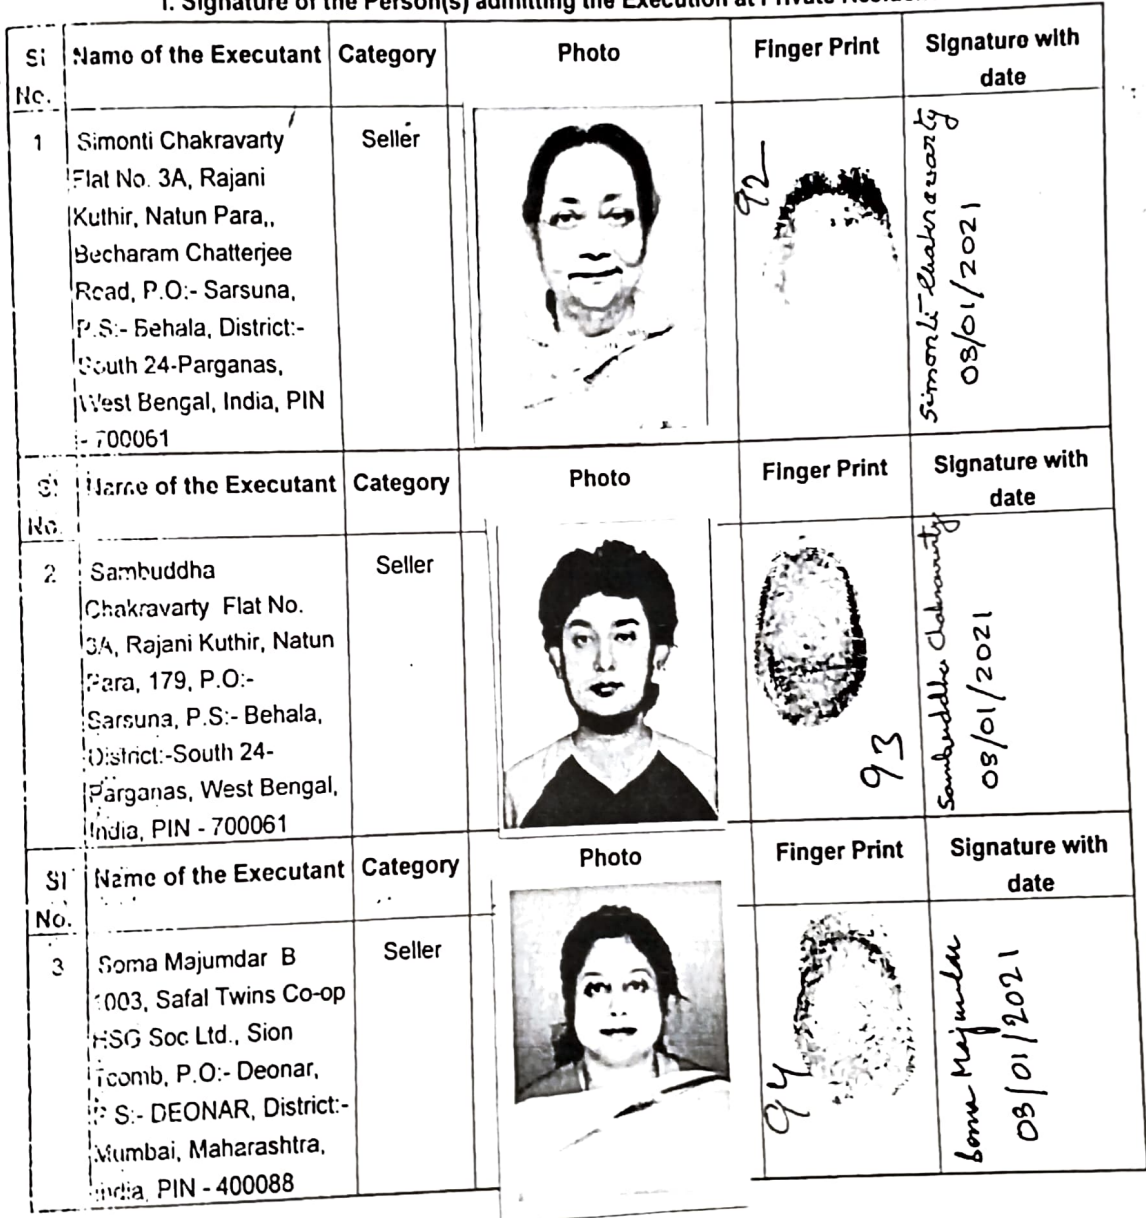 I. Signature of the Person(s) admitting the Execution at Private Residen
Sl No. Name of the Executant Category Photo Finger Print Signature with date
1 Simonti Chakravarty Seller
Flat No. 3A, Rajani
Kuthir, Natun Para,,
Becharam Chatterjee
Road, P.O:- Sarsuna,
P.S:- Behala, District:-
South 24-Parganas,
West Bengal, India, PIN
- 700061
92
Simonti Chakravarty
08/01/2021
Sl No. Name of the Executant Category Photo Finger Print Signature with date
2 Sambuddha Seller
Chakravarty Flat No.
3A, Rajani Kuthir, Natun
Para, 179, P.O:-
Sarsuna, P.S:- Behala,
District:-South 24-
Parganas, West Bengal,
India, PIN - 700061
93
Sambuddha Chakravarty
08/01/2021
Sl No. Name of the Executant Category Photo Finger Print Signature with date
3 Soma Majumdar B Seller
1003, Safal Twins Co-op
HSG Soc Ltd., Sion
Tcomb, P.O:- Deonar,
P S:- DEONAR, District:-
Mumbai, Maharashtra,
India, PIN - 400088
94
Soma Majumdar
08/01/2021